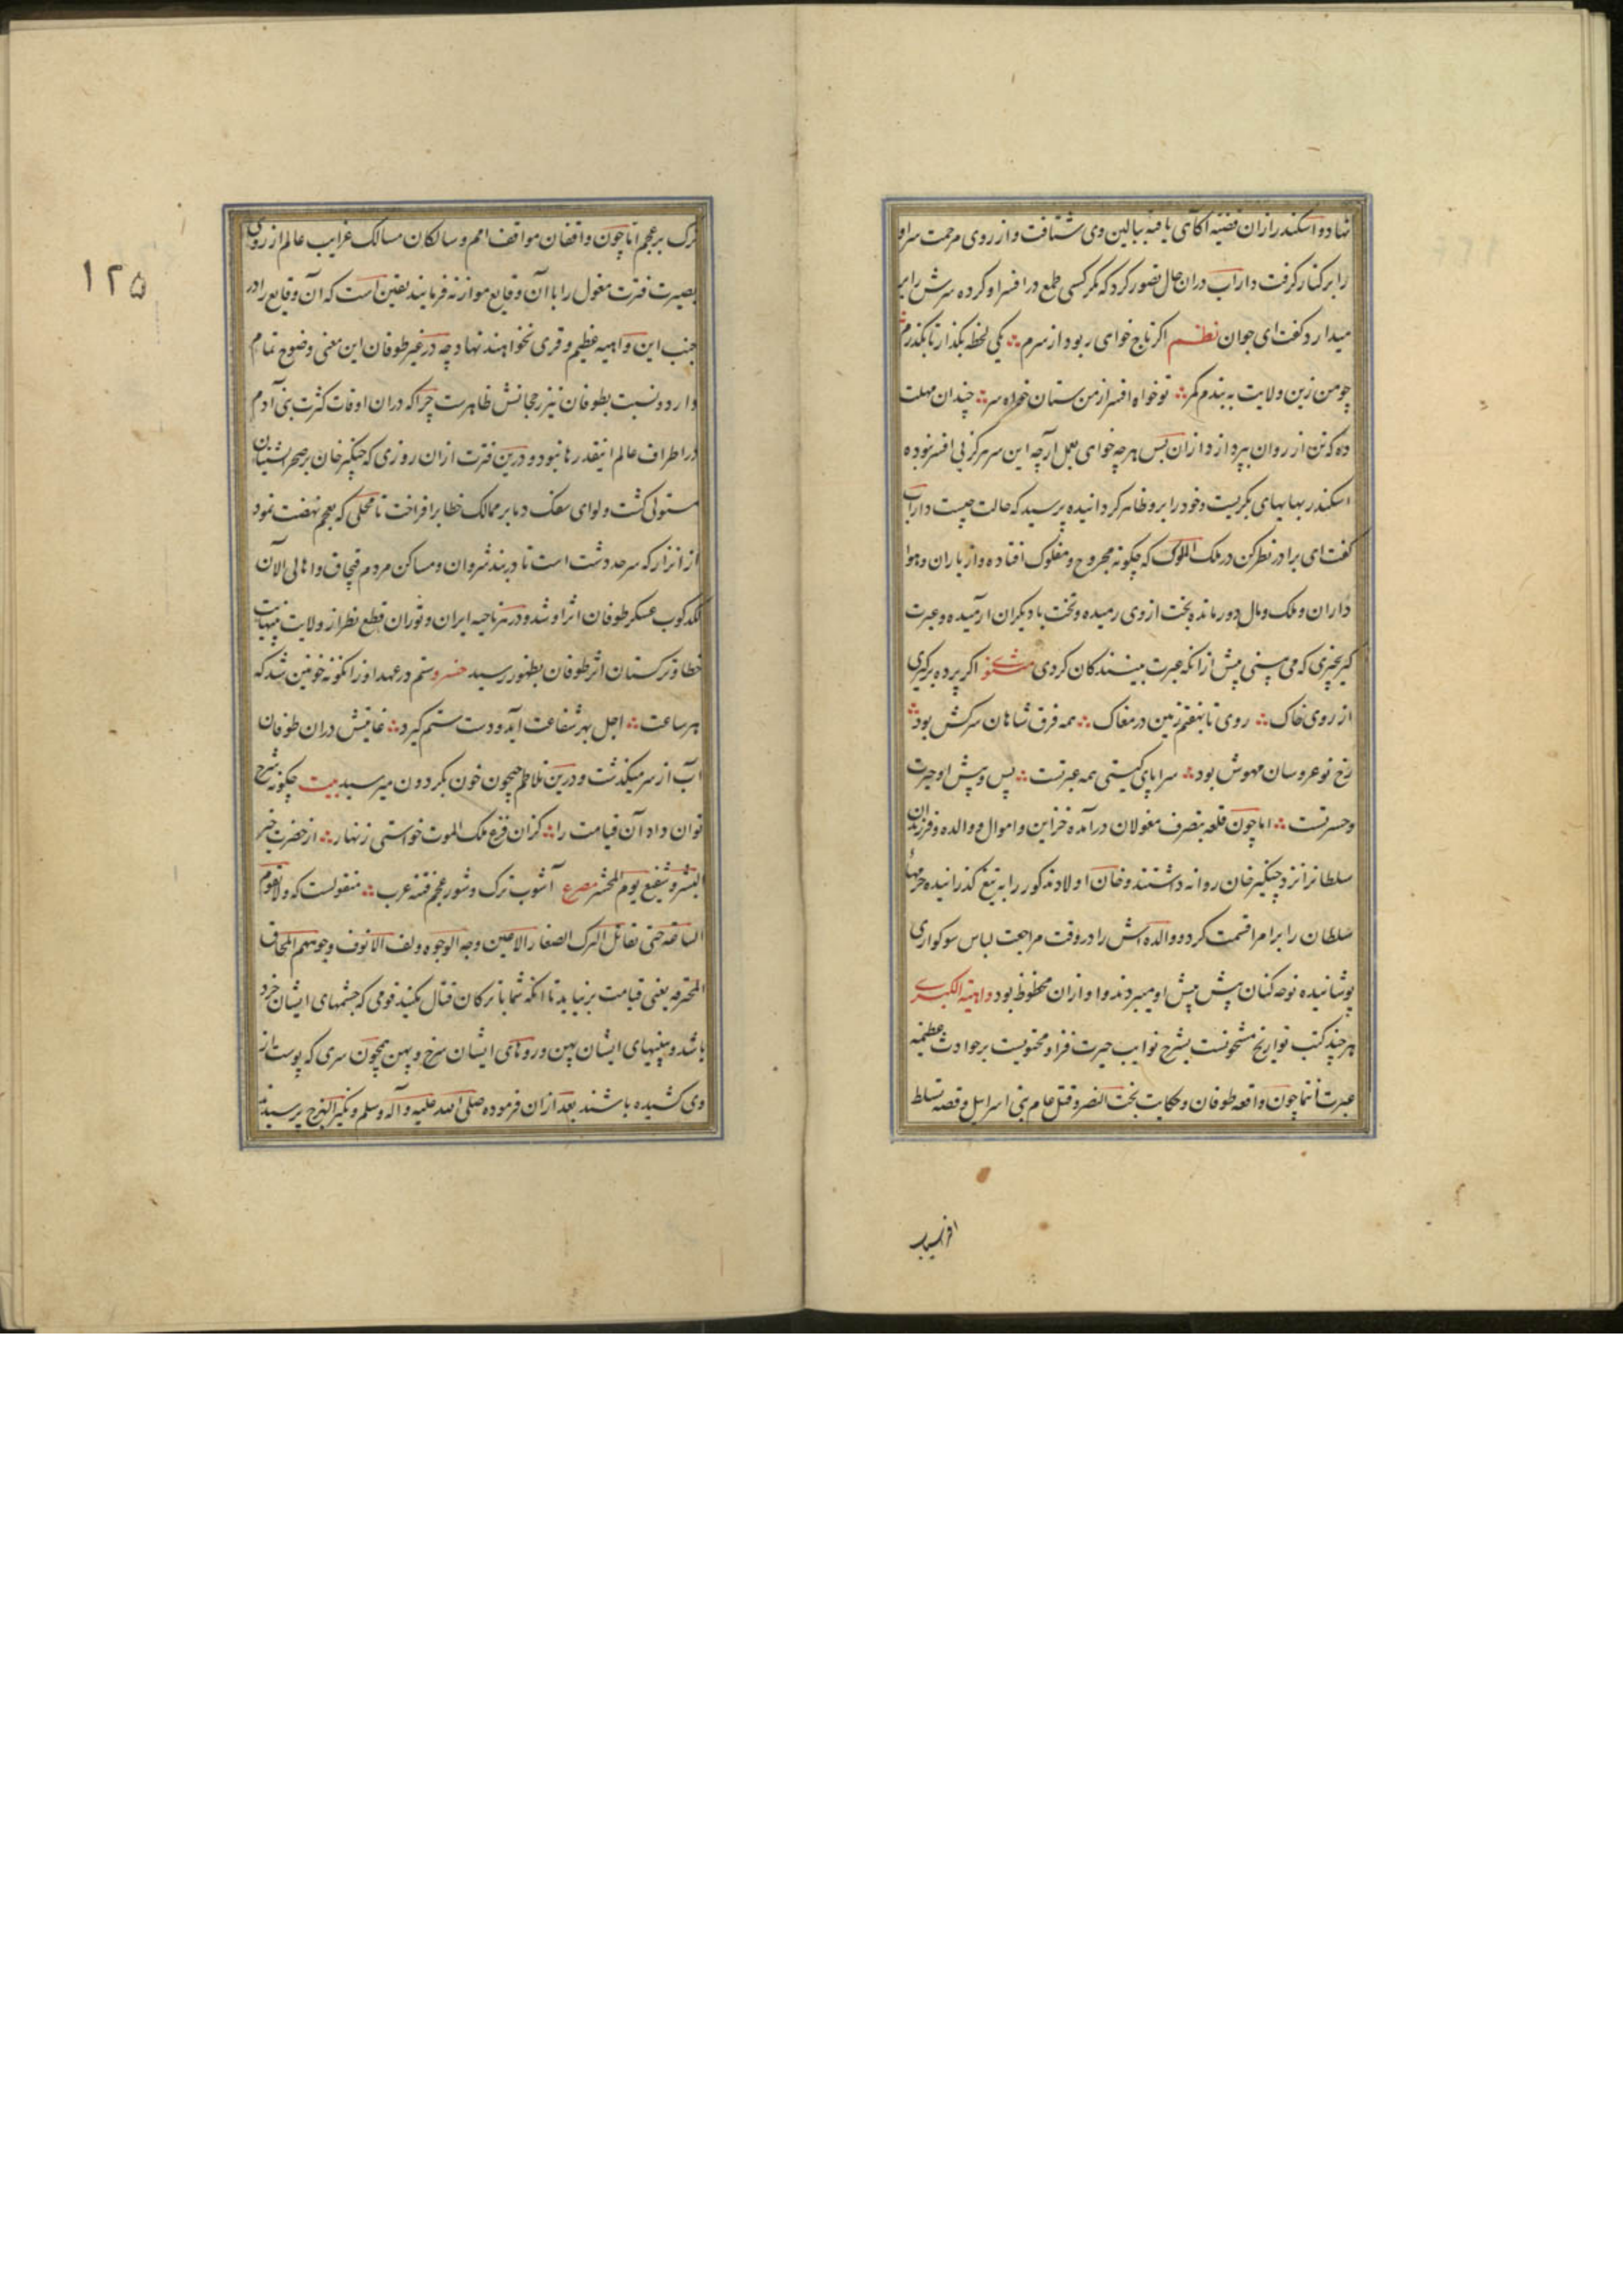 نهاده و اسکندر ازان قضیه آگاهی یافته ببالین وی شتافت و از روی مرحمت سر او
را بر کنار گرفت داراب دران حال تصور کرد که مگر کسی طمع در افسر او کرده سرش را بر
میدارد گفت ای جوان نظم اگر تاج خواهی ربود از سرم یکی لحظه بگذار تا بگذرم
چو من زین ولایت به بندم کمر تو خواه افسر از من ستان خواه سر چندان مهلت
ده که تن از روان بپردازد ازان پس هر چه خواهی بعمل آر چه این سر هرگز بی افسر نبوده
اسکندر بهایهای بگریست و خود را برو ظاهر گردانیده پرسید که حالت چیست داراب
گفت ای برادر نظر کن در ملک الملوک که چگونه مجروح و مفلوک افتاده و از یاران و هوا
داران و ملک و مال دور مانده بخت از وی رمیده و تخت با دیگران آرمیده و عبرت
گیر بچیزی که می بینی پیش ازانکه عبرت بینندگان کردی مثنوی اگر پرده برگیری
از روی خاک روی تا بهفتم زمین در مغاک همه فرق شاهان سرکش بود
رخ نو عروسان مهوش بود سراپای گیتی همه عبرتست پس و پیش او حیرت
و حسرتست اما چون قلعه بتصرف مغولان درآمده خزاین و اموال و والده و فرزندان
سلطانرا نزد چنگیز خان روانه داشتند و خان اولاد مذکور را به تیغ گذرانیده حرمهای
سلطان را بر امرا قسمت کرد و والده اش را در وقت مراجعت لباس سوکواری
پوشانیده نوحه کنان پیش پیش او میبردند و او ازان محظوظ بود واهیة الکبری
هر چند کتب تواریخ مشحونست بشرح نوایب حیرت فزا و محتویست بر حوادث عظیمه
عبرت انتما چون واقعه طوفان و حکایت بخت النصر و قتل عام بنی اسرایل و قصه تسلط
۱۲۵
ترک بر عجم اما چون واقفان مواقف امم و سالکان مسالک غرایب عالم از روی
بصیرت فترت مغول را با آن وقایع موازنه فرمایند یقین است که آن وقایع را در
جنب این واهیه عظیم وقری نخواهند نهاد و چه در غیر طوفان این معنی وضوح تمام
دارد و نسبت بطوفان نیز رجحانش ظاهرست چرا که دران اوقات کثرت بنی آدم
در اطراف عالم اینقدرها نبود و درین فترت ازان روزی که چنگیز خان بر صحرانشینان
مستولی گشت و لوای سفک دما بر ممالک خطا برافراخت تا محلی که بعجم نهضت نمود
از اترار که سرحد دشت است تا دربند شروان و مساکن مردم قبچاق و اهالی الان
لگدکوب عسکر طوفان اثر او شد و در هر ناحیه ایران و توران قطع نظر از ولایت
خطا و ترکستان اثر طوفان بظهور رسید خسرو ستم در عهد او زانگونه خونین شد که
هر ساعت اجل بهر شفاعت آید و دست ستم گیرد غایتش دران طوفان
آب از سر میگذشت و درین تلاطم جیحون خون بگردون میرسید بیت چگونه شرح
توان داد آن قیامت را کزان فزع ملک الموت خواستی زنهار از حضرت خیر
البشر و شفیع یوم المحشر مصرع آشوب ترک و شور عجم فتنه عرب منقولست که ولا تقوم
الساعة حتی تقاتل الترک الصغار الاعین وجه الوجوه ولف الانوف وجوههم المجان
المحترفه یعنی قیامت برنیاید تا انکه شما با ترکان قتال بکنید قومی که چشمهای ایشان خرد
باشد و بینیهای ایشان پهن و رویهای ایشان سرخ و پهن همچون سری که پوست از
وی کشیده باشند بعد ازان فرموده صلی الله علیه و آله و سلم ویکثر الهرج پرسیدند